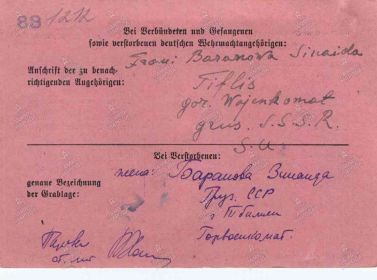 88 1212
Bei Verbündeten und Gefangenen
sowie verstorbenen deutschen Wehrmachtangehörigen:
Frani Baranowa Sinaida
Anschrift der zu benach-
richtigenden Angehörigen:
Tiflis
gor. Wojenkomat
grus. S.S.S.R.
S.U.
Bei Verstorbenen:
genaue Bezeichnung
der Grablage:
жена: Баранова Зинаида
Груз. ССР
г Тбилиси
Горвоенкомат.